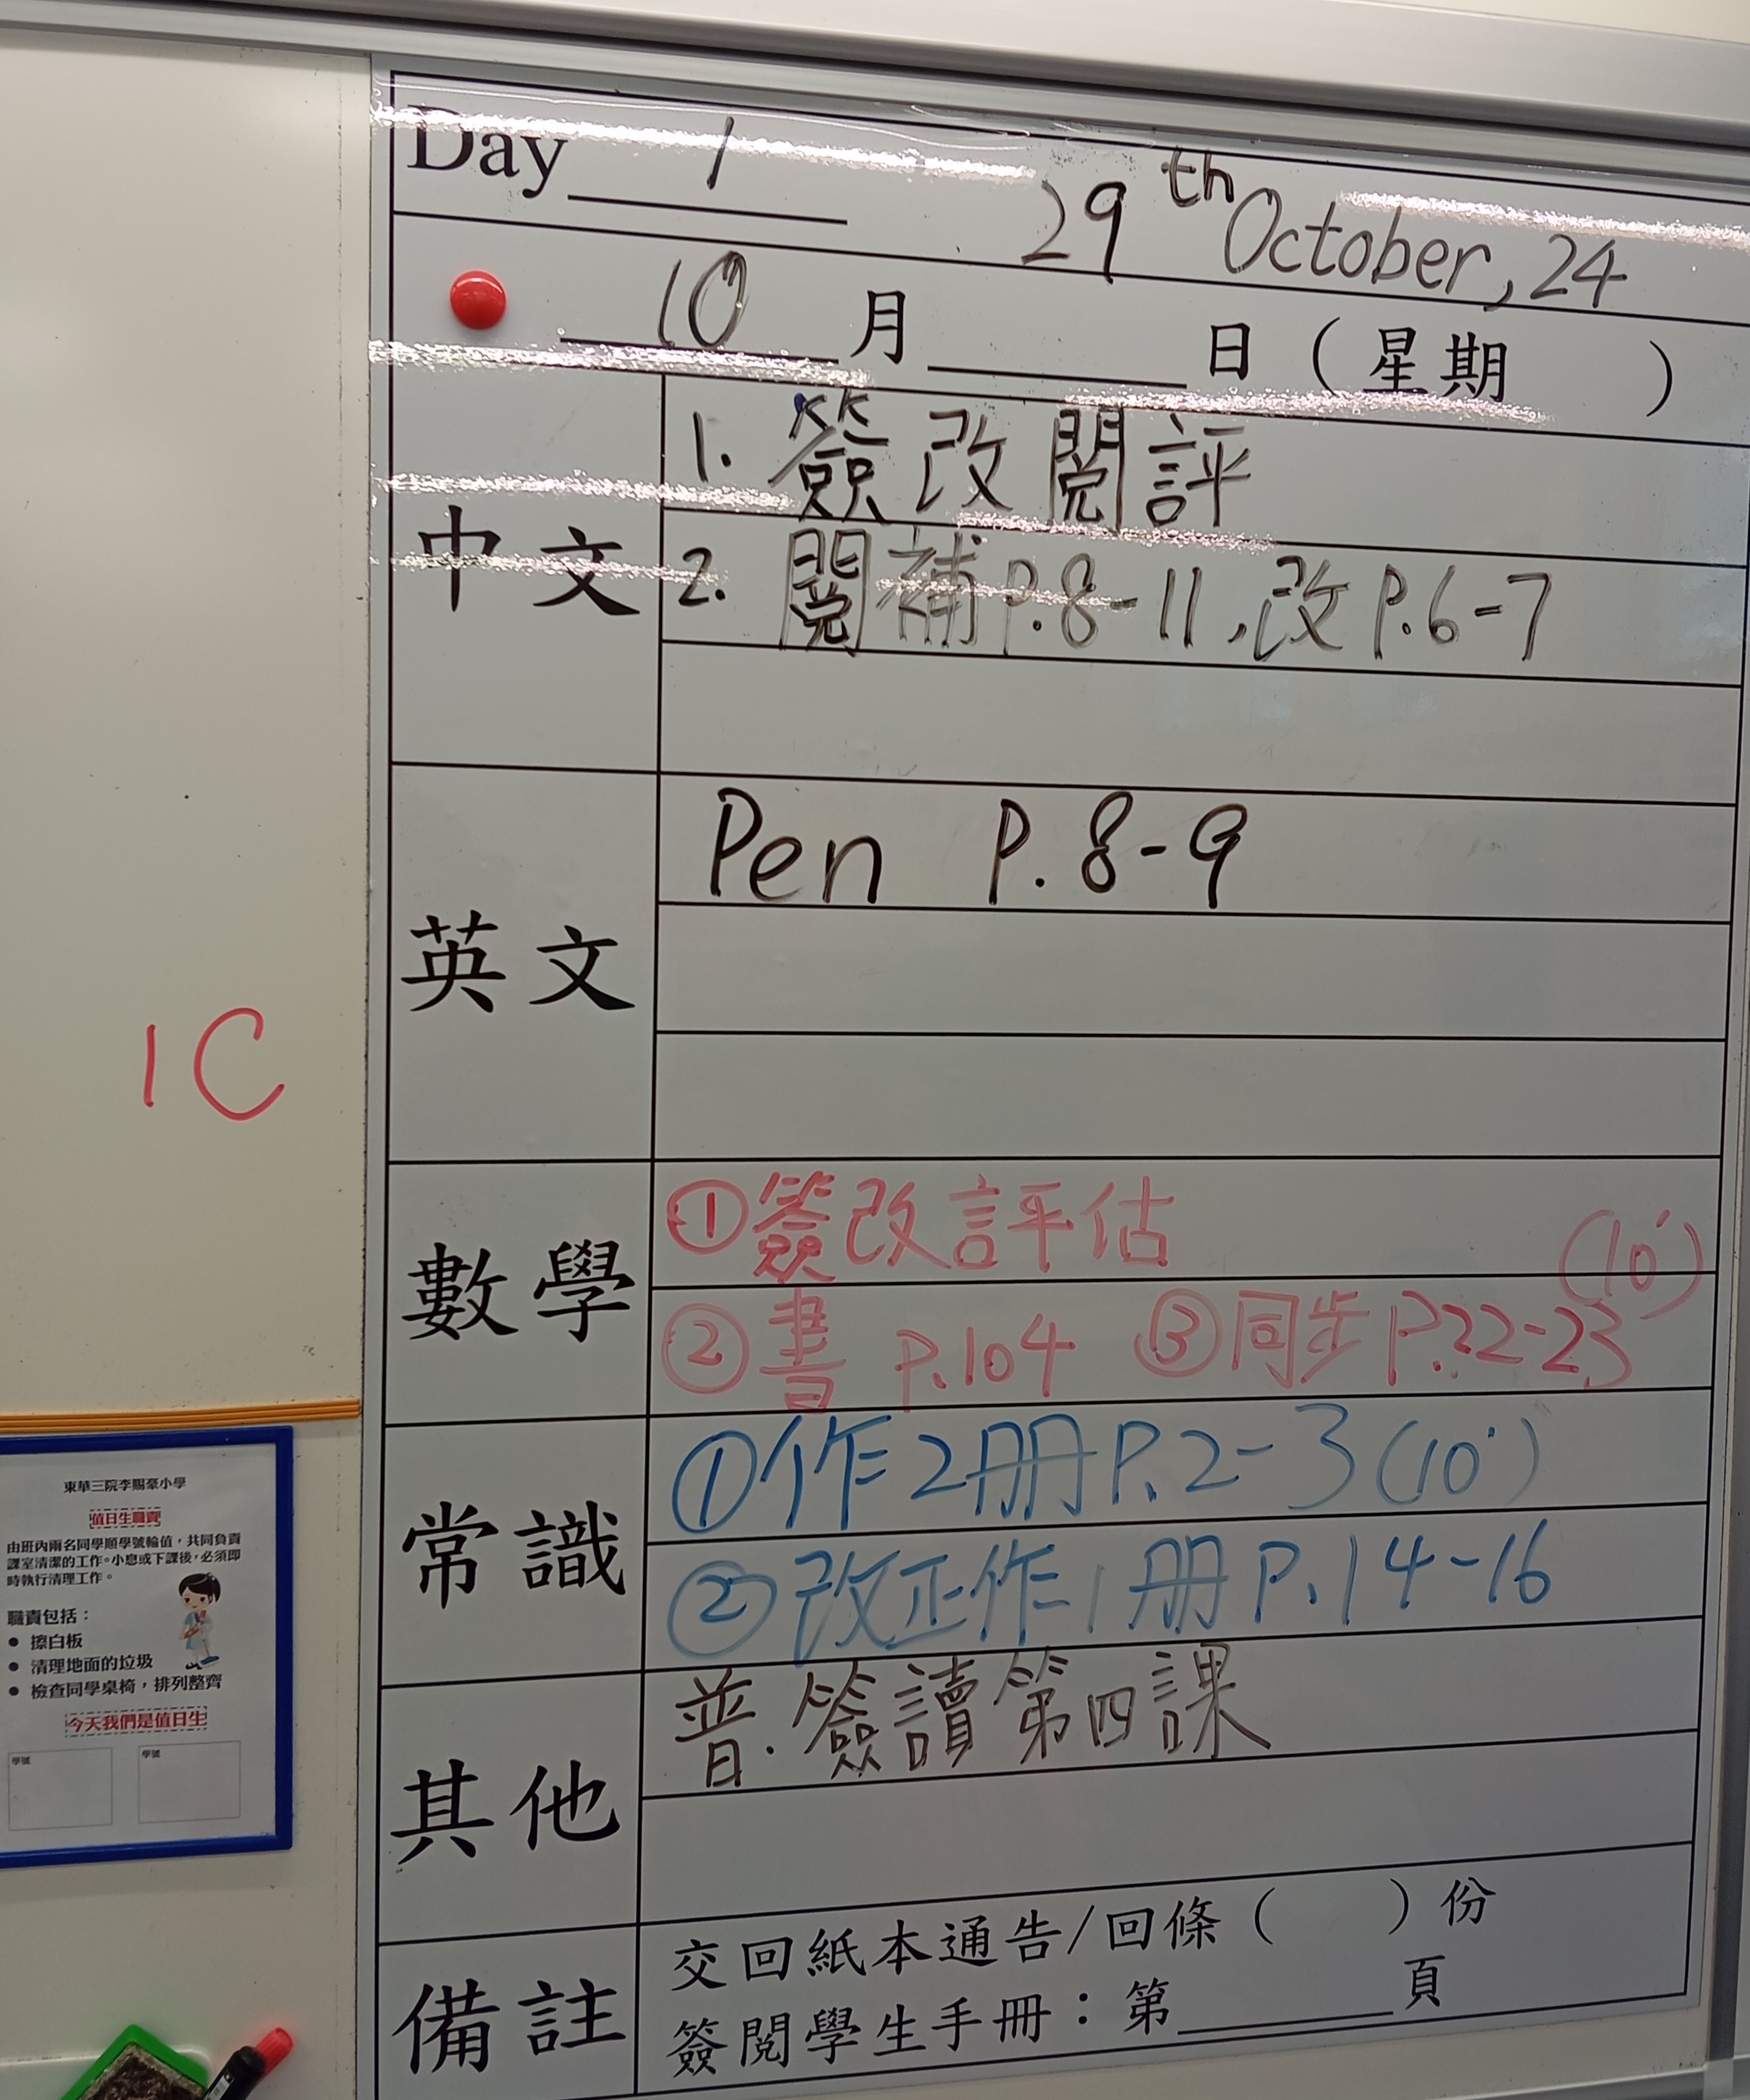 Day 1
29th October, 24
10月 日（星期 ）
中文
1. 簽改閱評
2. 閱補P.8-11,改P.6-7
英文
Pen P.8-9
數學
①簽改評估
(10')
②書 P.104 ③同步P.22-23
常識
①作2冊P.2-3(10')
②改正作1冊P.14-16
其他
普.簽讀第四課
備註
交回紙本通告/回條（ ）份
簽閱學生手冊：第 頁
1C
東華三院李賜豪小學
值日生職責
由班內兩名同學順學號輪值，共同負責
課室清潔的工作。小息或下課後，必須即
時執行清理工作。
職責包括：
● 擦白板
● 清理地面的垃圾
● 檢查同學桌椅，排列整齊
今天我們是值日生
學號 學號